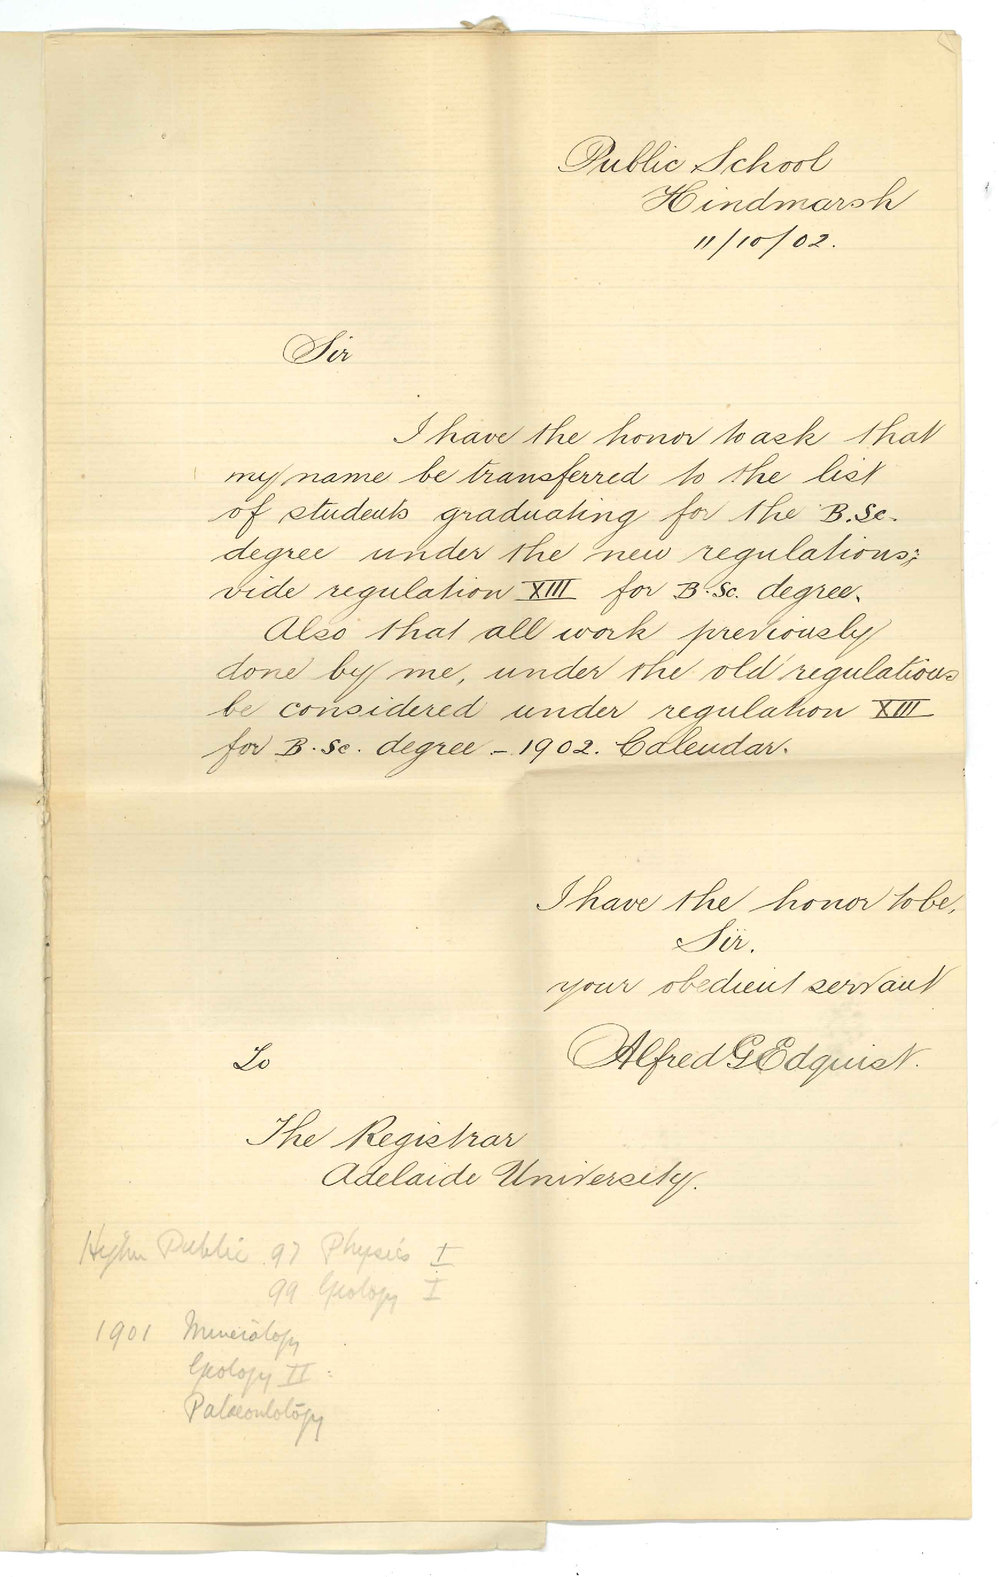 Public School
Hindmarsh
11/10/02.
Sir
I have the honor to ask that
my name be transferred to the list
of students graduating for the B.Sc.
degree under the new regulations;
vide regulation XIII for B.Sc. degree.
Also that all work previously
done by me, under the old regulations
be considered under regulation XIII
for B.Sc. degree – 1902. Calendar.
I have the honor to be,
Sir.
your obedient servant
Alfred G Edquist.
To
The Registrar
Adelaide University.
Higher Public 97 Physics I
99 Geology I
1901 Mineralogy
Geology II
Palaeontology